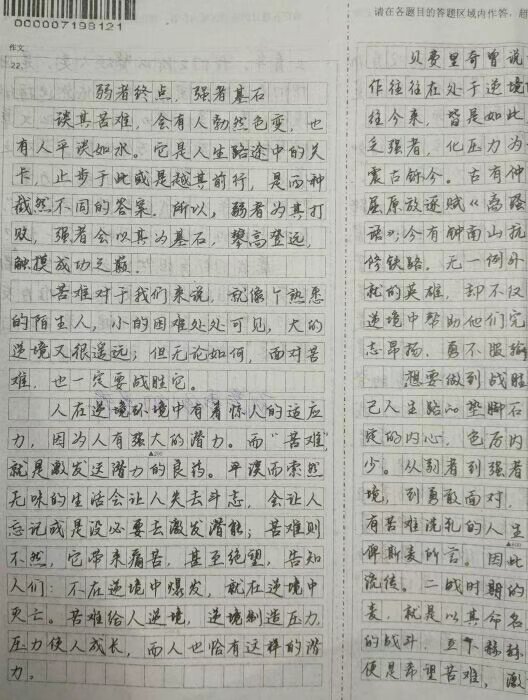 000007198121
作文
22.
弱者终点，强者基石
谈其苦难，会有人勃然色变，也
有人平谈如水。它是人生路途中的关
卡，止步于此或是越其前行，是两种
截然不同的答案。所以，弱者为其打
败，强者会以其为基石，攀高登远，
触摸成功之巅。
苦难对于我们来说，就像个熟悉
的陌生人，小的困难处处可见，大的
逆境又很遥远；但无论如何，面对苦
难，也一定要战胜它。
人在逆境环境中有着惊人的适应
力，因为人有强大的潜力。而“苦难”
▲200
就是激发这潜力的良药。平淡而索然
无味的生活会让人失去斗志，会让人
忘记或是没必要去激发潜能；苦难则
不然，它带来痛苦，甚至绝望，告知
人们：不在逆境中爆发，就在逆境中
灭亡。苦难给人逆境，逆境制造压力，
压力使人成长，而人也恰有这样的潜
力。
请在各题目的答题区域内作答，超
贝费里奇曾说
作往往在处于逆境
往今来，皆是如此
乏强者，化压力为
震古铄今。古有仲
屈原放逐赋《离骚
语》；今有钟南山抗
修铁路。无一例外
就的英雄，却不仅
逆境中帮助他们完
志昂扬，勇不服输
想要做到战胜
己人生路的垫脚石
定的内心，
少。从弱者到强者
境，到勇敢面对，
有苦难洗礼的人生
俾斯麦所言。因此
流传。二战时期的
麦，就是以其命名
的战斗，
便是希望苦难，激